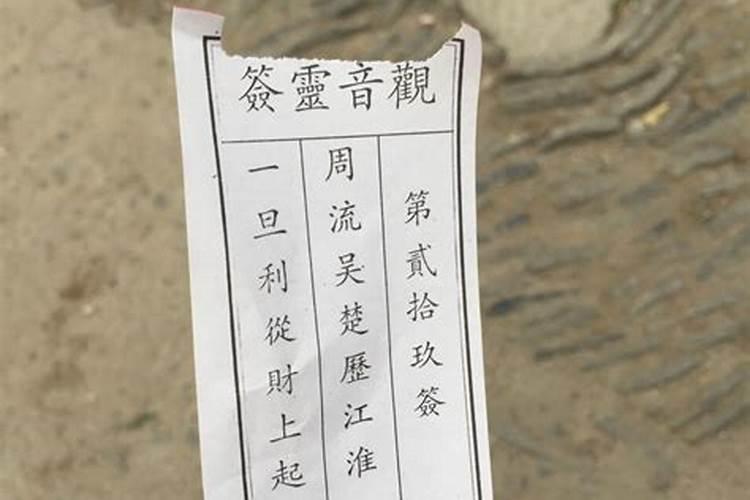 觀音靈簽
第貳拾玖簽
周流吴楚歷江淮
一旦利從財上起